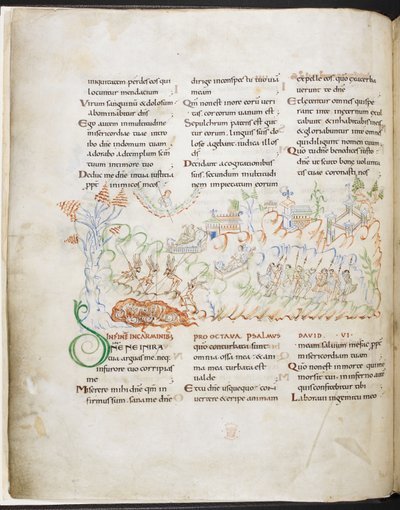 iniquitatem perdes eos qui
locuntur mendacium
Virum sanguinū & dolosum
abominabitur dn̄s
Ego autem in multitudine
misericordiae tuae intro
ibo dn̄e in domum tuam
adorabo ad templum scm̄
tuum in timore tuo
Deduc me dn̄e in tua iustitia
ppt̄ inimicos meos
dirige in conspec tu tuo uiā
meam
Qm̄ non est in ore eorū ueri
tas cor eorum uanum est
Sepulchrum patens est gut
tur eorum linguis suis do
lose agebant iudica illos
ds̄
Decidant a cogitationibus
suis secundum multitudi
nem impietatum eorum
expelle eos quo exacerba
uerunt te dn̄e
Et letentur omnes qui spe
rant in te in aeternum exul
tabunt & inhabitabis in eis
& gloriabuntur in te omnes
qui diligunt nomen tuum
Quo tu dn̄e benedices iusto
dn̄e ut scuto bonę uolunta
tis tuae coronasti nos
IN FINĒ IN CARMINIB;
PRO OCTAVA PSALMUS
DAVID VI
DNE NE IN IRA
tua arguas me neq;
in furore tuo corripias
me
Miserere mihi dn̄e qm̄ in
firmus sum sana me dn̄e
quō conturbata sunt
omnia ossa mea & ani
ma mea turbata est
ualde
Et tu dn̄e usquequo con
uertere & eripe animam
meam saluum me fac ppt̄
misericordiam tuam
Quō non est in morte qui me
mor sit tui in inferno aut
quis confitebitur tibi
Laboraui in gemitu meo